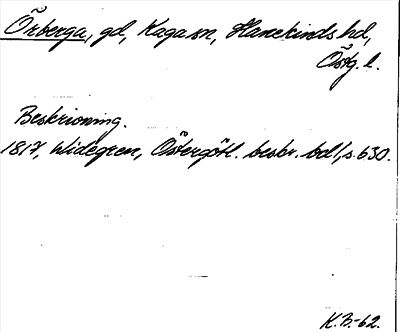 Örberga, gd, Kaga sn, Hanekinds hd,
Östg. l.
Beskrivning.
1817, Widegren, Östergötl. beskr. bd 1, s. 630.
K.B.-62.